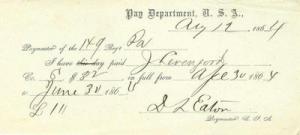 Pay Department, U. S. A.,
Aug 12 1864
Paymaster of the 149 Regt Pa
I have this day paid J Cavenport
Co. E $32 in full from Apr 30 1864
to June 30 1864
£ 111 D L Eaton
Paymaster U. S. A.